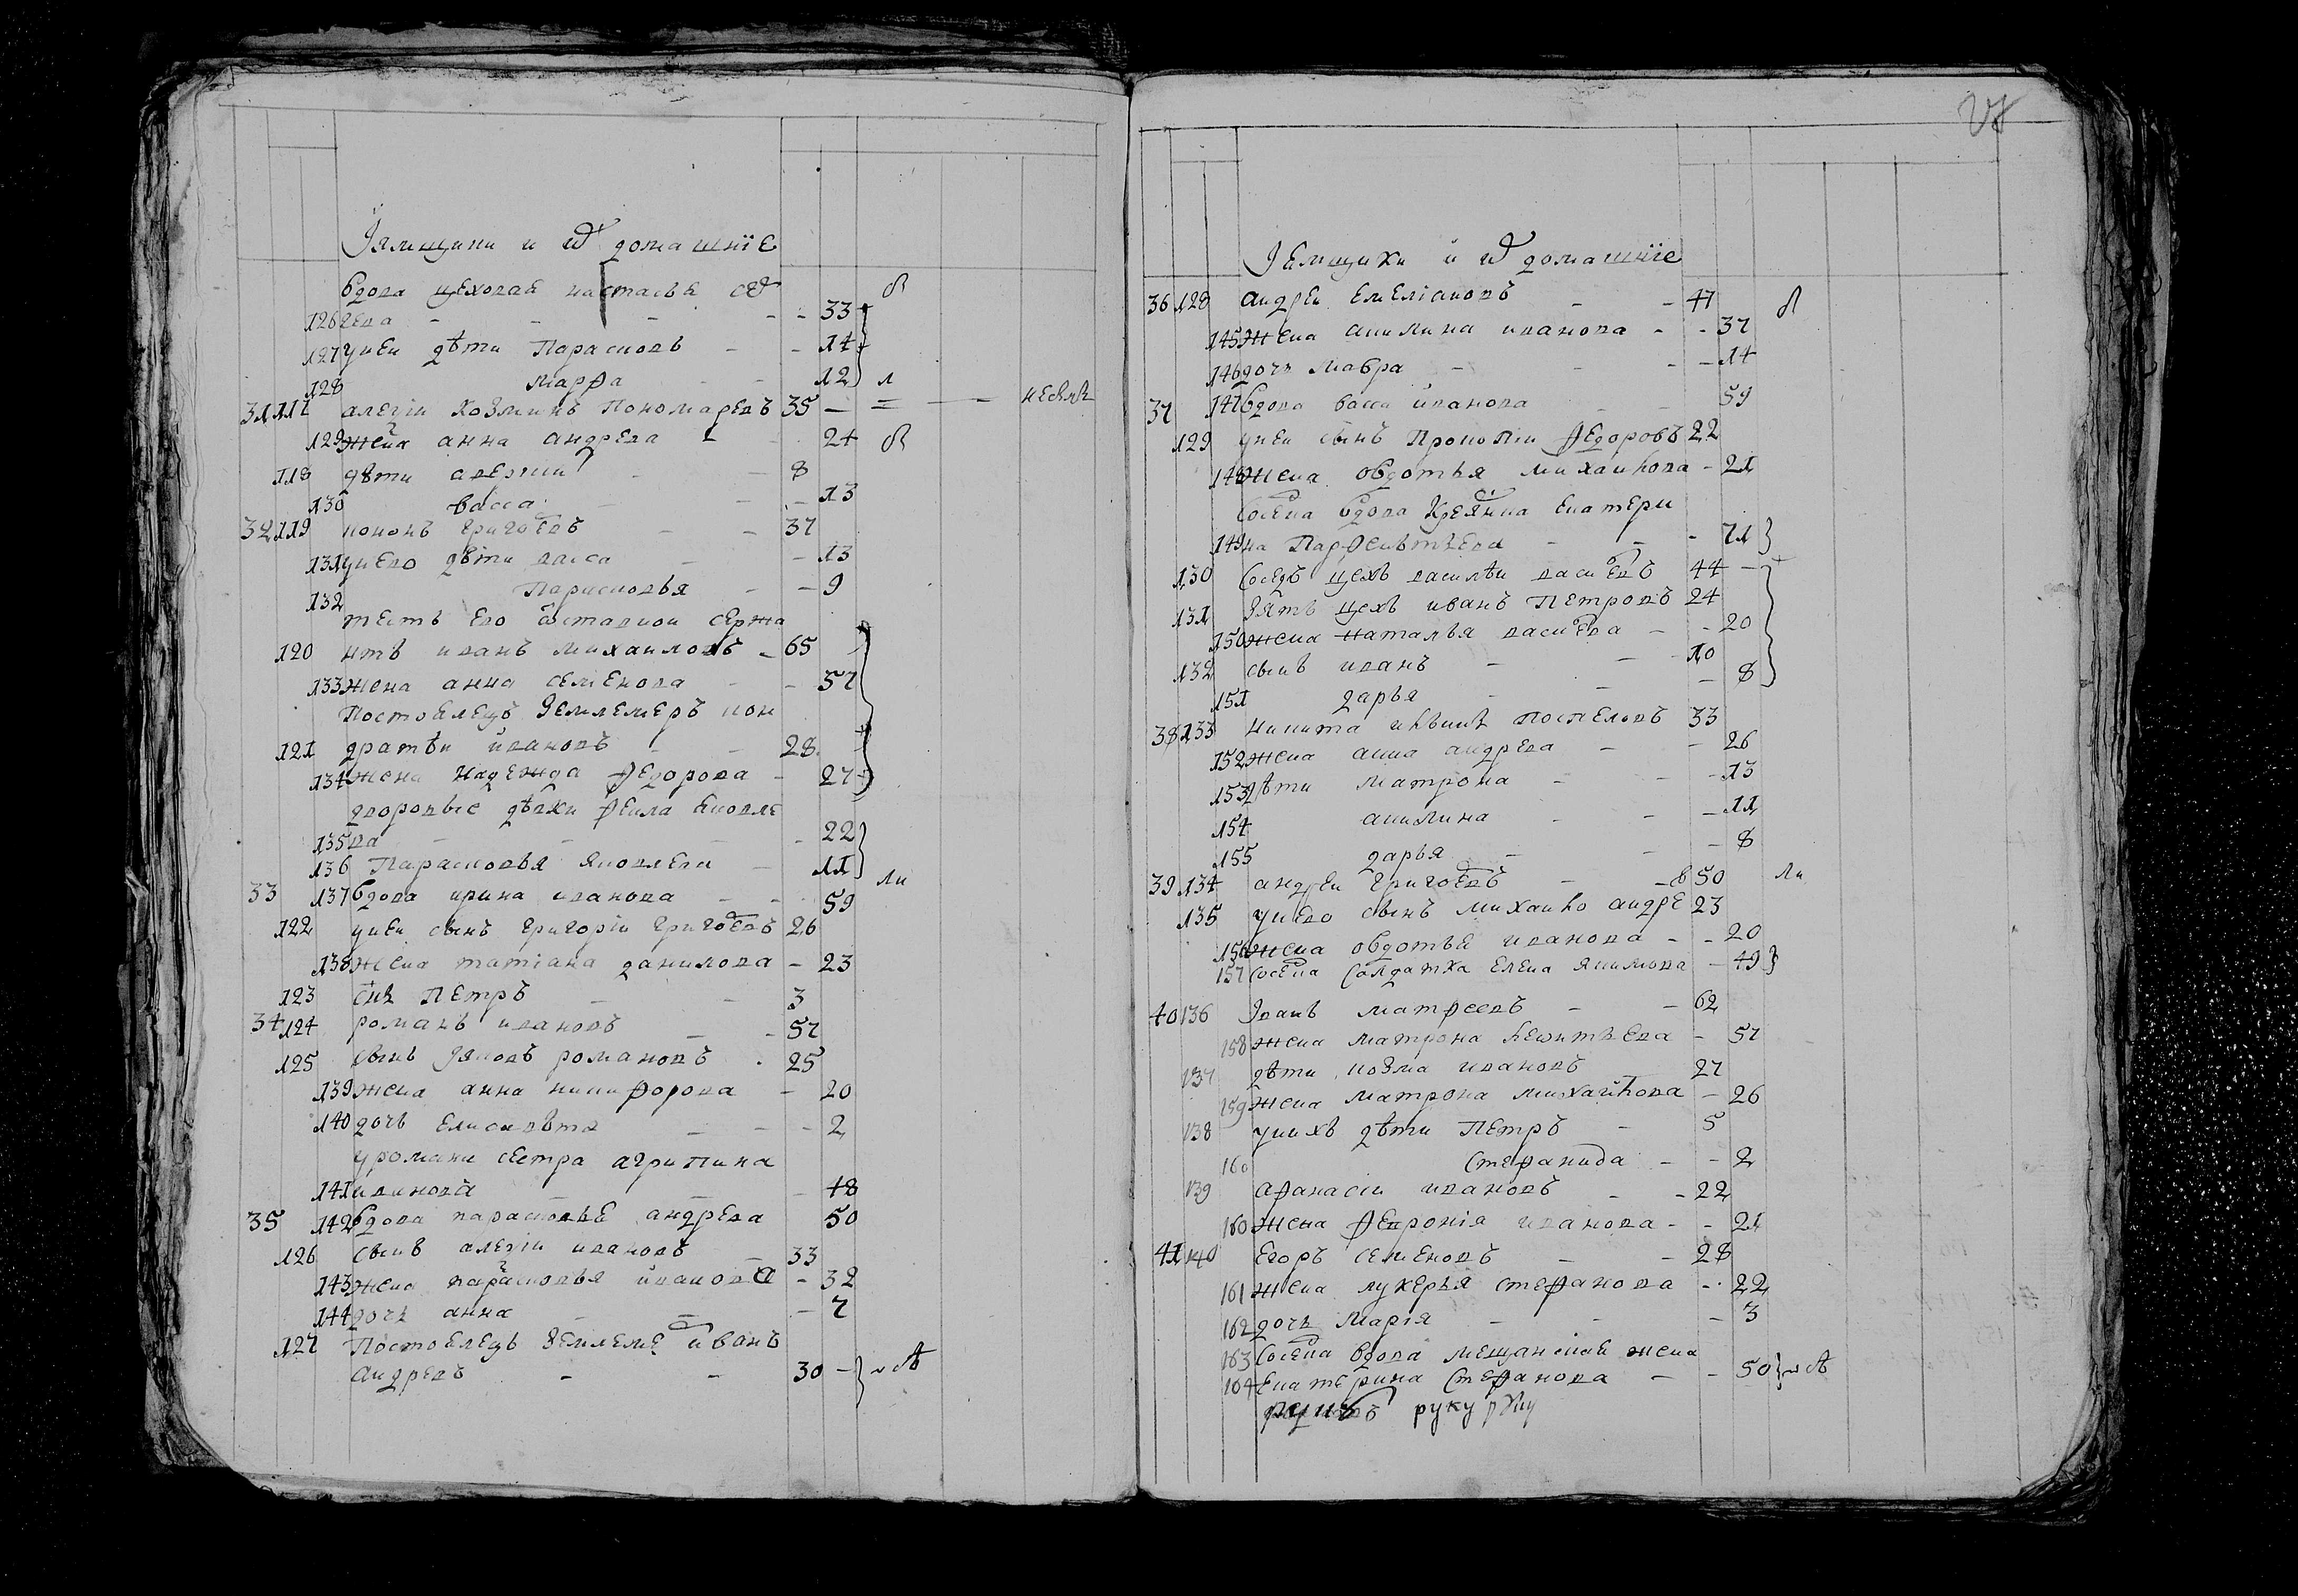 Ямщики и ихъ домашніе
вдова цеховая настасья
126 - - - - 33
127 унеи дѣти Парасковь - - 14
128 марфа - - 12
31 117 алеѯіи козминъ пономаревъ 35 —
129 жена анна андрева - 24
118 дѣти алеѯіи - - 8
130 васса - - 13
32 119 кононъ григоевъ - - 37
131 унево дѣти васса - - 13
132 Парасковья - - 9
тесть ево отставнои сержа
120 нтъ иванъ михаиловъ - 65
133 жена анна семенова - - 57
Постоялецъ землемеръ кон
121 дратеи ивановъ - - 28
134 жена надежда федорова - 27
дворовые дѣвки фекла яковле
135 ва - - - - 22
136 Парасковья яковлева - 11
33 137 вдова ирина иванова - - 59
122 унеи сынъ григоріи григоевъ 26
138 жена татіана данилова - 23
123 снъ Петръ - - 3
34 124 романъ ивановъ - - 57
125 сынъ Яковъ романовъ - 25
139 жена анна никифорова - 20
140 дочь елисавета - - - 2
уромана сестра агрипина
141 иванова - - - 48
35 142 вдова парасковья андрева 50
126 сынъ алеѯіи ивановъ - 33
143 жена парасковья иванова - 32
144 дочь анна - - - 7
127 Постоялецъ землеме иванъ
андревъ - - 30 -
Ямщики и ихъ домашніе
36 128 андреи емеліановъ - - 47
145 жена акилина иванова - - 37
146 дочь мавра - - - 14
37 147 вдова васса иванова - - 59
129 унеи сынъ прокопіи федоровъ 22
148 жена овдотья михаилова - 21
соседка вдова екатери
149 на - - - 71
130 соседъ цехъ василеи василевъ 44 -
131 зять цехъ иванъ петровъ 24
150 жена наталья василева - - 20
132 сынъ иванъ - - 10
151 дарья - - - 8
38 133 никита поспеловъ 33
152 жена анна андрева - - 26
153 дѣти матрона - - - 13
154 акилина - - - 11
155 дарья - - - 8
39 134 андреи григоевъ - - 50
135 унево сынъ михаило андре 23
156 жена овдотья иванова - - 20
157 соседка салдатка елена якимова - 49
40 136 Іванъ матфеевъ - - 62
158 жена матрона леонтьева - 57
137 дѣти козма ивановъ 27
159 жена матрона михаилова - 26
138 унихъ дѣти Петръ - 5
160 степанида - - 2
139 афанасіи ивановъ - - 22
160 жена февронія иванова - - 21
41 140 егоръ семеновъ - - 28
161 жена лукерья степанова - - 22
162 дочь марія - - - 3
163 соседка вдова мещанская жена
164 екатерина степанова - - 50
руку